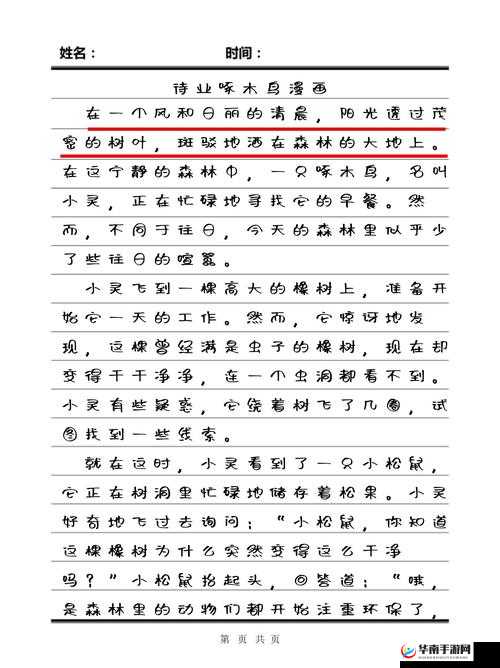 姓名： 时间：
待业啄木鸟漫画
在一个风和日丽的清晨，阳光透过茂
密的树叶，斑驳地洒在森林的大地上。
在这宁静的森林中，一只啄木鸟，名叫
小灵，正在忙碌地寻找它的早餐。然
而，不同于往日，今天的森林里似乎少
了些往日的喧嚣。
小灵飞到一棵高大的橡树上，准备开
始它一天的工作。然而，它惊讶地发
现，这棵曾经满是虫子的橡树，现在却
变得干干净净，连一个虫洞都看不到。
小灵有些疑惑，它绕着树飞了几圈，试
图找到一些线索。
就在这时，小灵看到了一只小松鼠，
它正在树洞里忙碌地储存着松果。小灵
好奇地飞过去询问：“小松鼠，你知道
这棵橡树为什么突然变得这么干净
吗？”小松鼠抬起头，回答道：“哦，
是森林里的动物们都开始注重环保了，
第 页 共 页
华南手游网